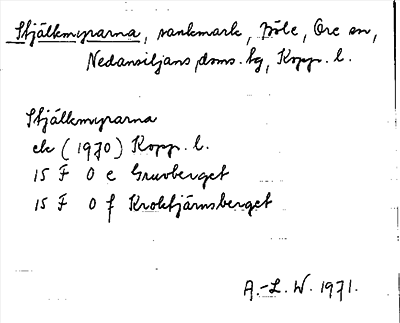 Stjälkmyrarna, sankmark, Ore sn,
Nedansiljans doms. tg, Kopp. l.
Stjälkmyrarna
ek (1970) Kopp. l.
15 F 0 e Gruvberget
15 F 0 f Kroktjärnsberget
A.-L. W. 1971.